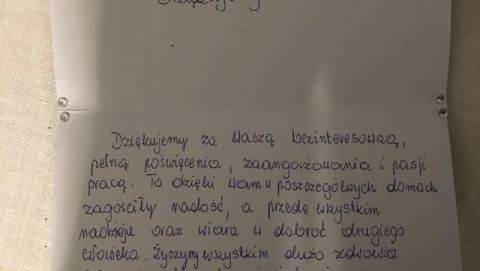 Dziękujemy za waszą bezinteresowną,
pełną poświęcenia, zaangażowania i pasji
pracą. To dzięki wam w poszczególnych domach
zagościły radość, a przede wszystkim
nadzieja oraz wiara w dobroć drugiego
człowieka. Życzymy wszystkim dużo zdrowia